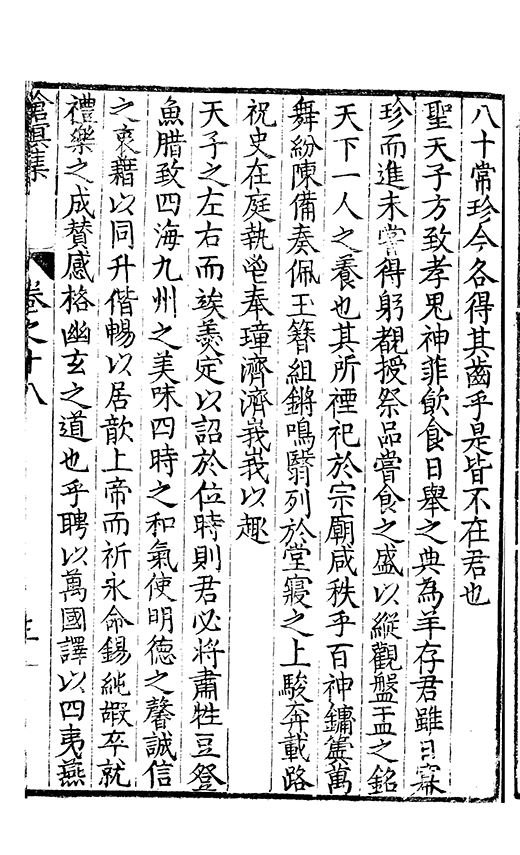 八十常珍今各得其齒乎是皆不在君也
聖天子方致孝鬼神菲飲食日舉之典為羊存君雖日寀
珍而進未嘗得躬覩授祭品嘗食之盛以縱觀盤盂之銘
天下一人之養也其所禋祀於宗廟咸秩乎百神鏞簴萬
舞紛陳備奏佩玉簪組鏘鳴翳列於堂寢之上駿奔載路
祝史在庭執鬯奉璋濟濟峩峩以趣
天子之左右而竢羹定以詔於位時則君必將肅牲豆登
魚腊致四海九州之美味四時之和氣使明德之馨誠信
之衷藉以同升偕暢以居歆上帝而祈永命錫純嘏卒就
禮樂之成贊感格幽玄之道也乎聘以萬國譯以四夷燕
卷之十八